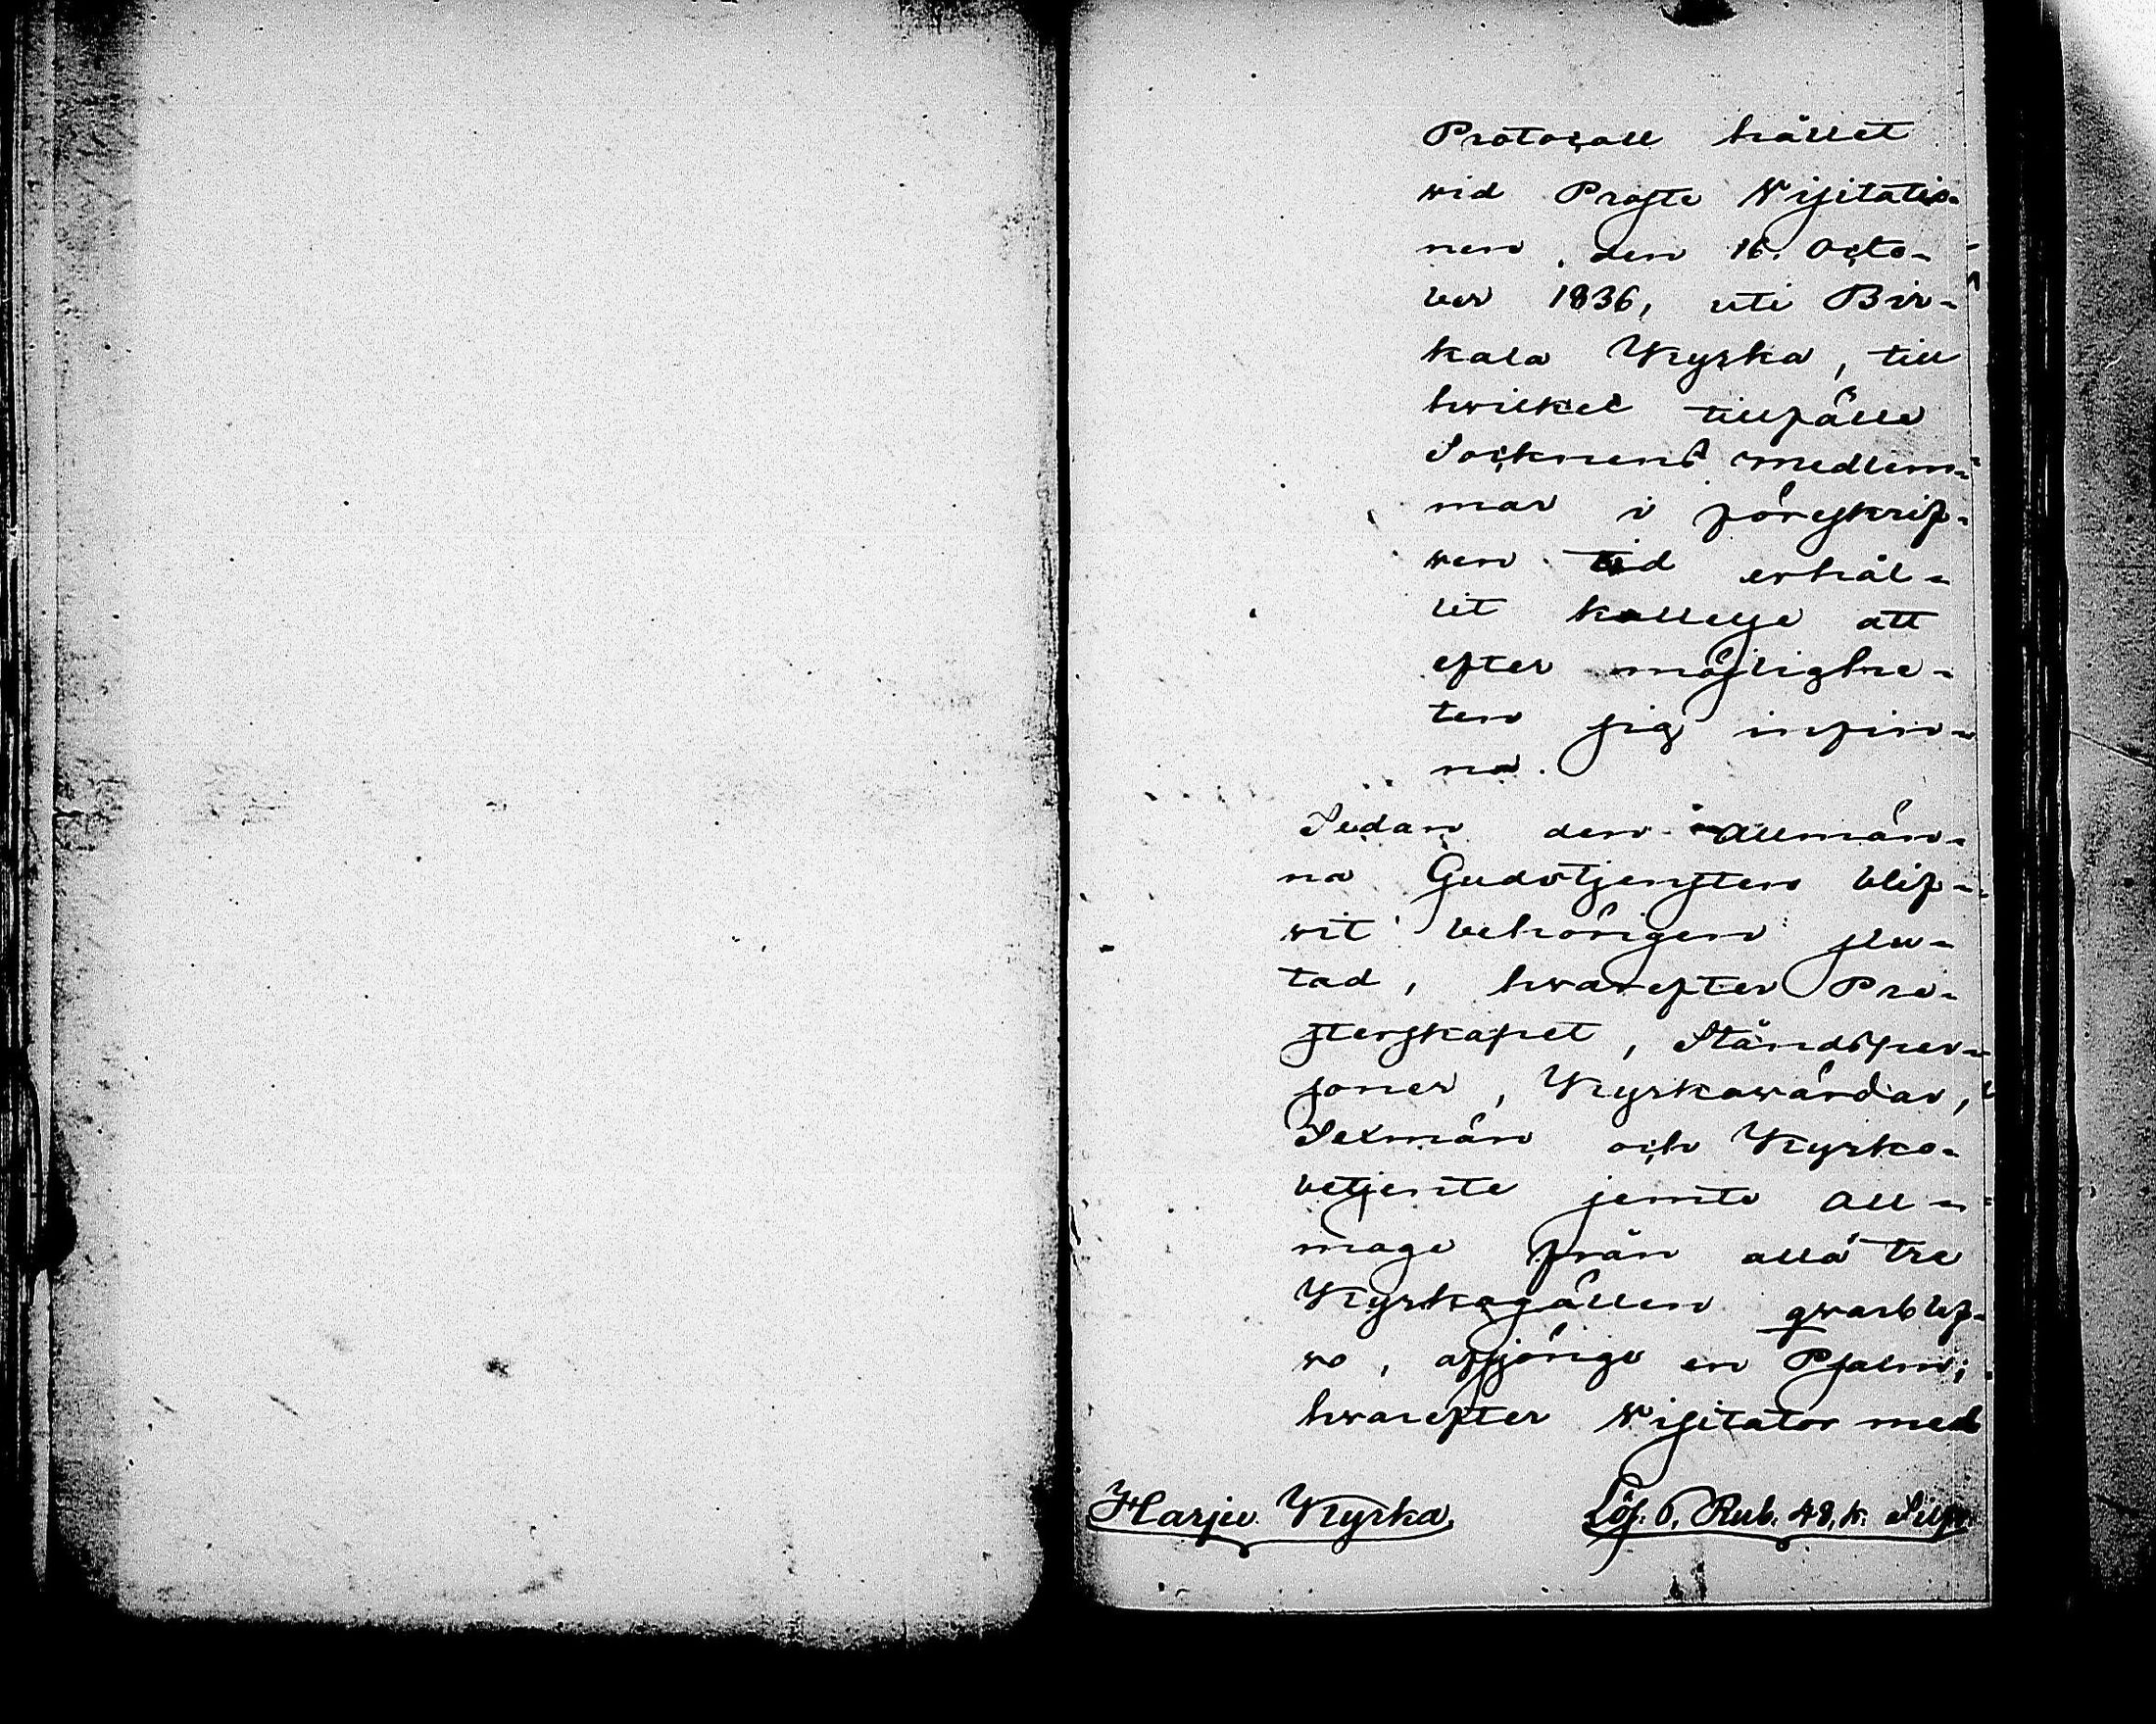 Protocoll hållet
wid Proste Visitatio-
nen den 16. Octo-
ber 1836, uti Bir-
kala Kyrka, till
hwilket tillfälle
Socknens medlem-
mar i föreskrif-
wen tid erhål-
lit kallelse att
efter möjlighe-
ten sig infin-
na.
Sedan den allmän-
na Gudstjensten blif-
wit behörigen slu-
tad, hwarefter Pre-
sterskapet, Ståndsper-
soner, Kyrkowärdar,
Sexmän och Kyrko-
betjente jemte all-
moge från alla tre
Kyrkogällen qwarblif-
wo, afsjöngs en Psalm;
hwarefter Visitator med
Harju Kyrka. Löf. 6, Rub. 48, k.